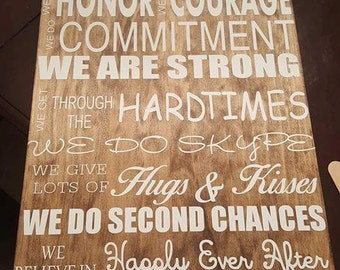 WE DO HONOR WE DO COURAGE
WE DO COMMITMENT
WE ARE STRONG
WE GET THROUGH THE HARDTIMES
WE DO SKYPE
WE GIVE LOTS OF Hugs & Kisses
WE DO SECOND CHANCES
WE BELIEVE IN Happly Ever After